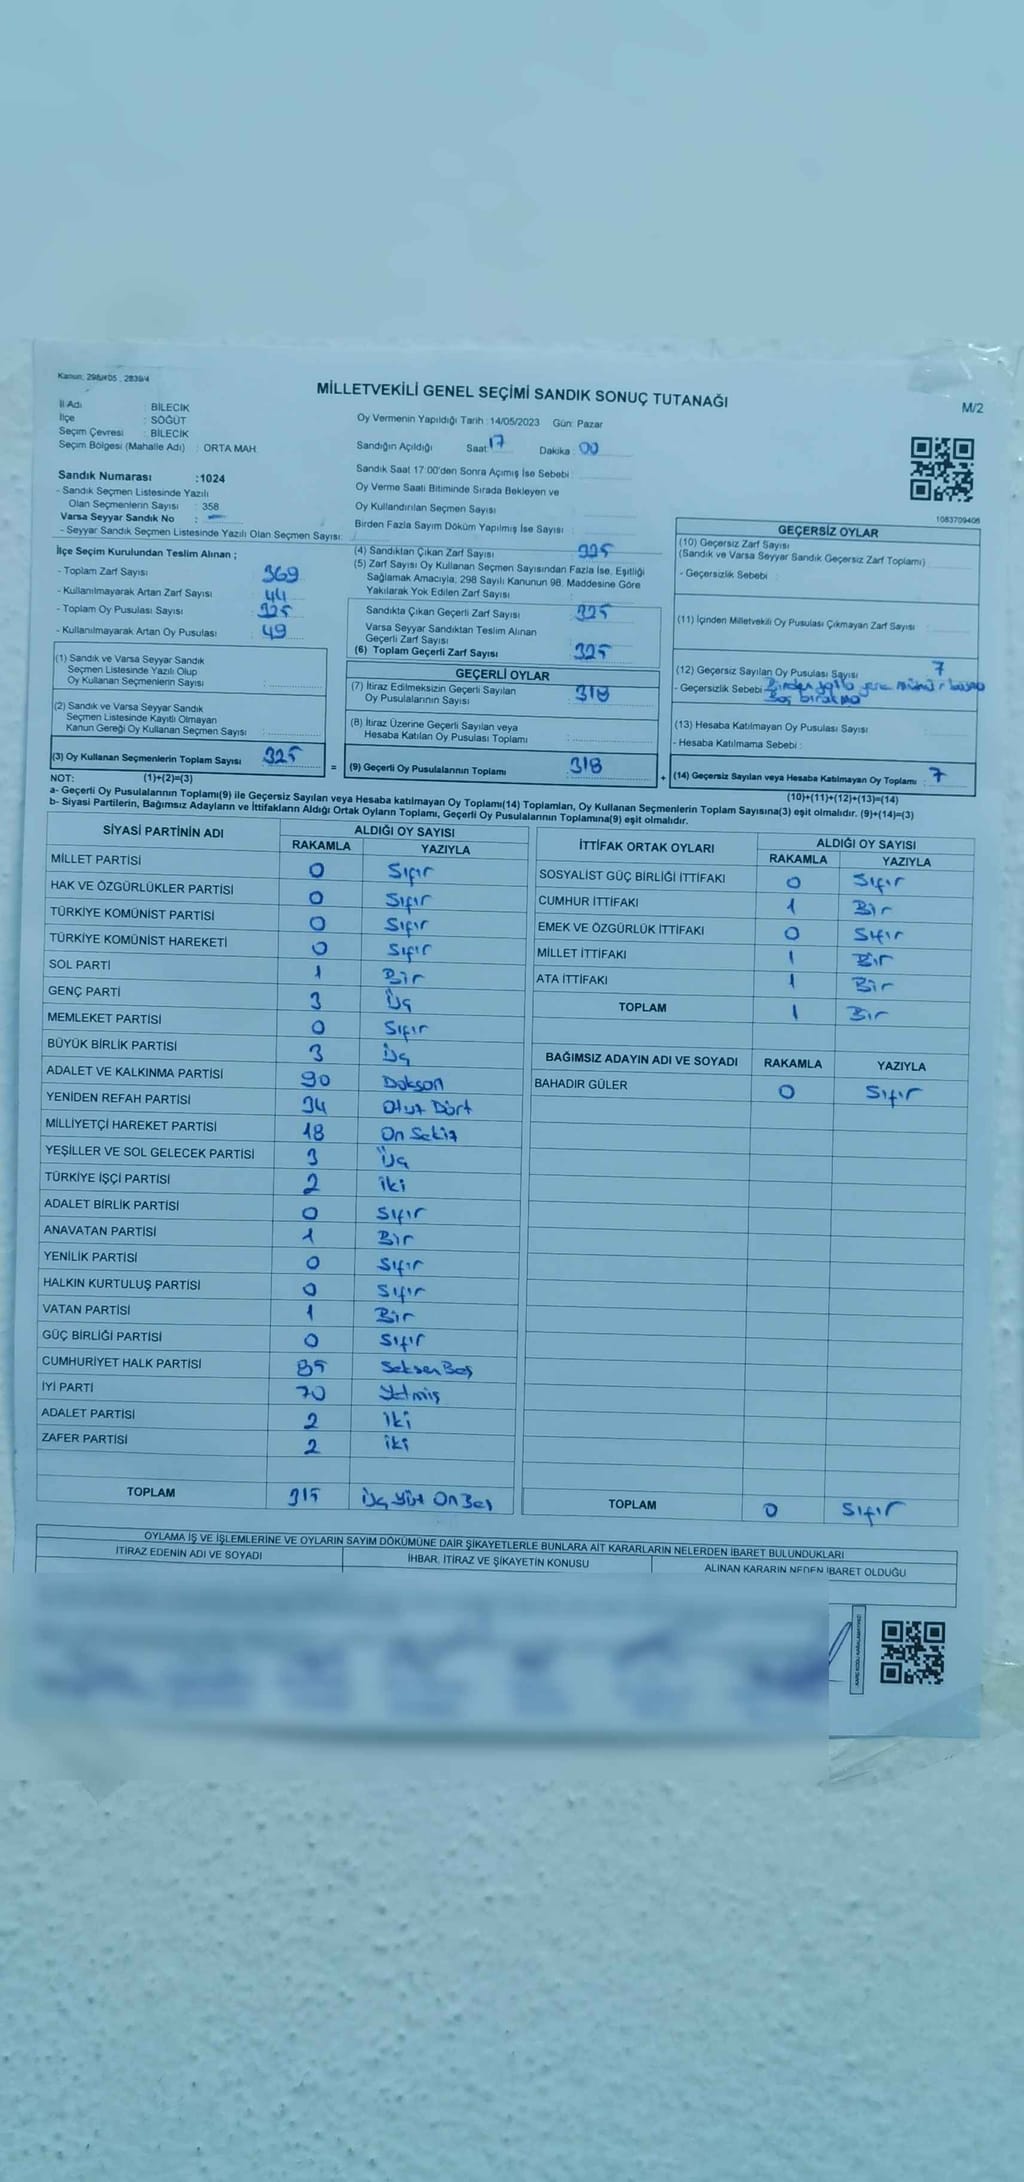 Kanun: 298/4:05 , 2839/4
MİLLETVEKİLİ GENEL SEÇİMİ SANDIK SONUÇ TUTANAĞI
M/2
İl Adı : BİLECİK
İlçe : SÖĞÜT
Seçim Çevresi : BİLECİK
Seçim Bölgesi (Mahalle Adı) : ORTA MAH
Oy Vermenin Yapıldığı Tarih : 14/05/2023 Gün: Pazar
Sandığın Açıldığı Saat: 17 Dakika : 00
Sandık Saat 17:00'den Sonra Açımış İse Sebebi :
Oy Verme Saati Bitiminde Sırada Bekleyen ve
Oy Kullandırılan Seçmen Sayısı
Birden Fazla Sayım Döküm Yapılmış İse Sayısı :
Sandık Numarası :1024
- Sandık Seçmen Listesinde Yazılı
Olan Seçmenlerin Sayısı : 358
Varsa Seyyar Sandık No : -
- Seyyar Sandık Seçmen Listesinde Yazılı Olan Seçmen Sayısı:
1083709406
İlçe Seçim Kurulundan Teslim Alınan ;
- Toplam Zarf Sayısı 369
- Kullanılmayarak Artan Zarf Sayısı 44
- Toplam Oy Pusulası Sayısı 325
- Kullanılmayarak Artan Oy Pusulası 49
(1) Sandık ve Varsa Seyyar Sandık
Seçmen Listesinde Yazılı Olup
Oy Kullanan Seçmenlerin Sayısı :
(2) Sandık ve Varsa Seyyar Sandık
Seçmen Listesinde Kayıtlı Olmayan
Kanun Gereği Oy Kullanan Seçmen Sayısı :
(3) Oy Kullanan Seçmenlerin Toplam Sayısı 325
(1)+(2)=(3)
(4) Sandıktan Çıkan Zarf Sayısı 325
(5) Zarf Sayısı Oy Kullanan Seçmen Sayısından Fazla İse, Eşitliği
Sağlamak Amacıyla, 298 Sayılı Kanunun 98. Maddesine Göre
Yakılarak Yok Edilen Zarf Sayısı :
Sandıkta Çıkan Geçerli Zarf Sayısı : 325
Varsa Seyyar Sandıktan Teslim Alınan
Geçerli Zarf Sayısı
(6) Toplam Geçerli Zarf Sayısı : 325
GEÇERLİ OYLAR
(7) İtiraz Edilmeksizin Geçerli Sayılan
Oy Pusulalarının Sayısı : 318
(8) İtiraz Üzerine Geçerli Sayılan veya
Hesaba Katılan Oy Pusulası Toplamı :
= (9) Geçerli Oy Pusulalarının Toplamı 318
GEÇERSİZ OYLAR
(10) Geçersiz Zarf Sayısı
(Sandık ve Varsa Seyyar Sandık Geçersiz Zarf Toplamı)
- Geçersizlik Sebebi :
(11) İçinden Milletvekili Oy Pusulası Çıkmayan Zarf Sayısı :
(12) Geçersiz Sayılan Oy Pusulası Sayısı 7
- Geçersizlik Sebebi : Birden fazla yere mühür basma
Boş bırakma
(13) Hesaba Katılmayan Oy Pusulası Sayısı
- Hesaba Katılmama Sebebi :
+ (14) Geçersiz Sayılan veya Hesaba Katılmayan Oy Toplamı : 7
(10)+(11)+(12)+(13)=(14)
NOT:
a- Geçerli Oy Pusulalarının Toplamı(9) ile Geçersiz Sayılan veya Hesaba katılmayan Oy Toplamı(14) Toplamları, Oy Kullanan Seçmenlerin Toplam Sayısına(3) eşit olmalıdır. (9)+(14)=(3)
b- Siyasi Partilerin, Bağımsız Adayların ve İttifakların Aldığı Ortak Oyların Toplamı, Geçerli Oy Pusulalarının Toplamına(9) eşit olmalıdır.
SİYASİ PARTİNİN ADI ALDIĞI OY SAYISI
RAKAMLA YAZIYLA
MİLLET PARTİSİ 0 Sıfır
HAK VE ÖZGÜRLÜKLER PARTİSİ 0 Sıfır
TÜRKİYE KOMÜNİST PARTİSİ 0 Sıfır
TÜRKİYE KOMÜNİST HAREKETİ 0 Sıfır
SOL PARTİ 1 Bir
GENÇ PARTİ 3 Üç
MEMLEKET PARTİSİ 0 Sıfır
BÜYÜK BİRLİK PARTİSİ 3 Üç
ADALET VE KALKINMA PARTİSİ 90 Doksan
YENİDEN REFAH PARTİSİ 34 Otuz Dört
MİLLİYETÇİ HAREKET PARTİSİ 18 On Sekiz
YEŞİLLER VE SOL GELECEK PARTİSİ 3 Üç
TÜRKİYE İŞÇİ PARTİSİ 2 iki
ADALET BİRLİK PARTİSİ 0 Sıfır
ANAVATAN PARTİSİ 1 Bir
YENİLİK PARTİSİ 0 Sıfır
HALKIN KURTULUŞ PARTİSİ 0 Sıfır
VATAN PARTİSİ 1 Bir
GÜÇ BİRLİĞİ PARTİSİ 0 Sıfır
CUMHURİYET HALK PARTİSİ 85 Seksen Beş
İYİ PARTİ 70 Yetmiş
ADALET PARTİSİ 2 iki
ZAFER PARTİSİ 2 iki
TOPLAM 315 Üç Yüz On Beş
İTTİFAK ORTAK OYLARI ALDIĞI OY SAYISI
RAKAMLA YAZIYLA
SOSYALİST GÜÇ BİRLİĞİ İTTİFAKI 0 Sıfır
CUMHUR İTTİFAKI 1 Bir
EMEK VE ÖZGÜRLÜK İTTİFAKI 0 Sıfır
MİLLET İTTİFAKI 1 Bir
ATA İTTİFAKI 1 Bir
TOPLAM 1 Bir
BAĞIMSIZ ADAYIN ADI VE SOYADI RAKAMLA YAZIYLA
BAHADIR GÜLER 0 Sıfır
TOPLAM 0 Sıfır
OYLAMA İŞ VE İŞLEMLERİNE VE OYLARIN SAYIM DÖKÜMÜNE DAİR ŞİKAYETLERLE BUNLARA AİT KARARLARIN NELERDEN İBARET BULUNDUKLARI
İTİRAZ EDENİN ADI VE SOYADI İHBAR, İTİRAZ VE ŞİKAYETİN KONUSU ALINAN KARARIN NEDEN İBARET OLDUĞU